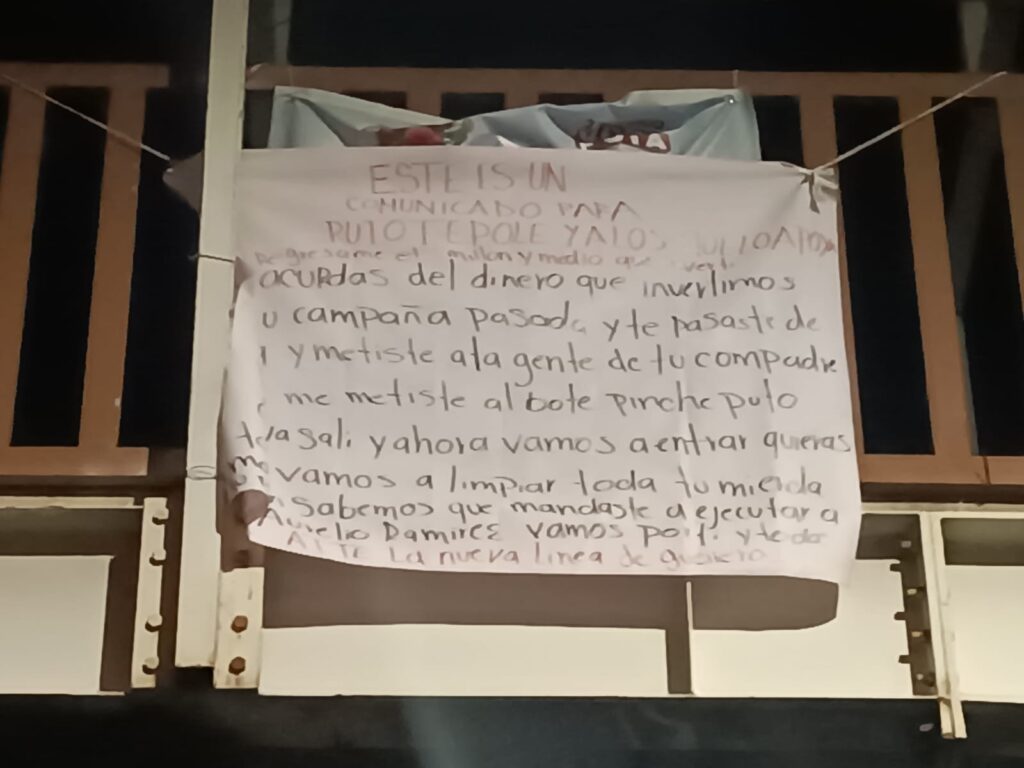 ESTE IS UN
COMUNICADO PARA
PUTO TEPOLE Y A LOS
Regresame el millon y medio que
acurdas del dinero que invertimos
u campaña pasada y te pasaste de
y metiste a la gente de tu compadre
me metiste al bote pinche puto
ya sali y ahora vamos a entrar quieras
vamos a limpiar toda tu mierda
Sabemos que mandaste a ejecutar a
Damires vamos por ti y todo
ATTE La nueva linea de